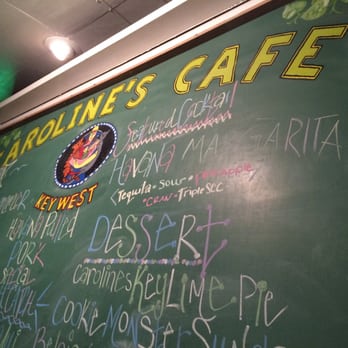 AROLINE'S CAFE
KEY WEST
Featured Cocktail
HAVANA MARGARITA
Tequila - sour - pineapple
- cran - Triple Sec
Havana Pulled
PORK
Special
DESSERT
Caroline's Key Lime Pie
COOKIE MONSTER